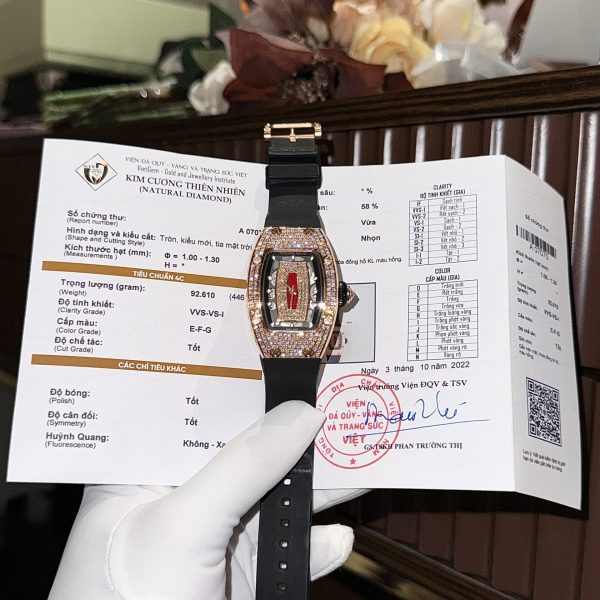 VIỆN ĐÁ QUÝ - VÀNG VÀ TRANG SỨC VIỆT
VietGem - Gold and Jewellery Institute
KIM CƯƠNG THIÊN NHIÊN
(NATURAL DIAMOND)
Số chứng thư:
(Report number)
A 070
Hình dạng và kiểu cắt: Tròn, kiểu mới, tia mặt trời
(Shape and Cutting Style)
Kích thước hạt (mm): Φ = 1.00 - 1.30
(Measurements) H = *
TIÊU CHUẨN 4C
Trọng lượng (gram): 92.610 (446
(Weight)
Độ tinh khiết: VVS-VS-I
(Clarity Grade)
Cấp màu: E-F-G
(Color Grade)
Chế độ cắt: Tốt
(Cut Grade)
CÁC CHỈ TIÊU KHÁC
Độ bóng: Tốt
(Polish)
Độ cân đối: Tốt
(Symmetry)
Huỳnh Quang: Không - Xa
(Fluorescence)
sâu: * %
58 %
Vừa
Nhọn
đồng hồ KL màu hồng.
CLARITY
ĐỘ TINH KHIẾT (GIA)
IF Sạch tinh
VVS-1 Rất sạch - 1
VVS-2 Rất sạch - 2
VS-1 Sạch - 1
VS-2 Sạch - 2
SI-1 Vết nhỏ - 1
SI-2 Vết nhỏ - 2
I-1 Tật - 1
I-2 Tật - 2
COLOR
CẤP MÀU (GIA)
D Trắng tinh
E Rất trắng
F Trắng
G Trắng
Ngày 3 tháng 10 năm 2022
Viện trưởng Viện ĐQV & TSV
VIỆN
ĐÁ QUÝ-VÀNG
VÀ TRANG SỨC
VIỆT
GS.TSKH PHAN TRƯỜNG THỊ
Số chứng thư:
Φ = 1.00 - 1.30
92.610
VVS-VS-I
E-F-G
Tốt